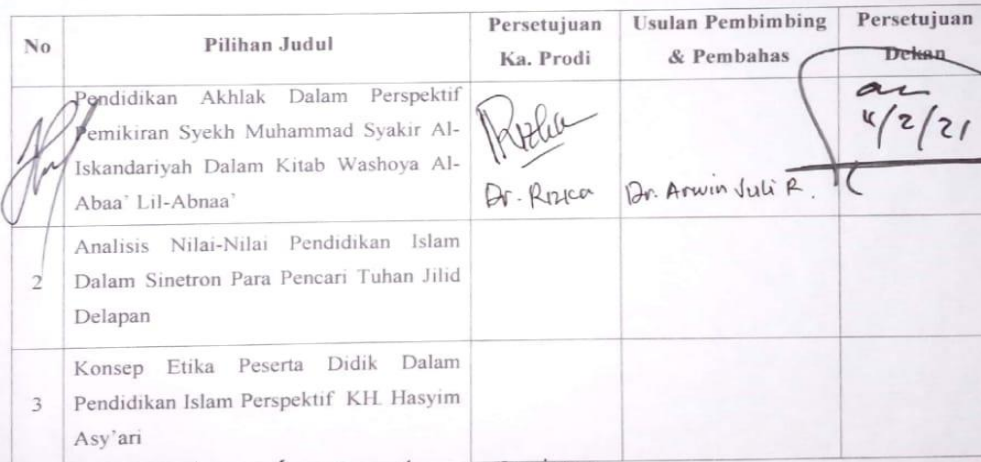 No
Pilihan Judul
Persetujuan
Ka. Prodi
Usulan Pembimbing
& Pembahas
Persetujuan
Dekan
Pendidikan Akhlak Dalam Perspektif
Pemikiran Syekh Muhammad Syakir Al-
Iskandariyah Dalam Kitab Washoya Al-
Abaa' Lil-Abnaa'
Dr. Rizka
Dr. Arwin Juli R.
/2/21
2
Analisis Nilai-Nilai Pendidikan Islam
Dalam Sinetron Para Pencari Tuhan Jilid
Delapan
3
Konsep Etika Peserta Didik Dalam
Pendidikan Islam Perspektif KH. Hasyim
Asy'ari